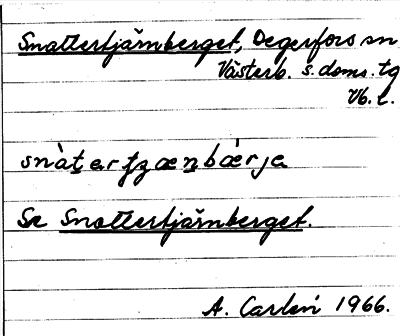 Snottertjärnberget, Degerfors sn
Västerb. s. doms. tg
Vb. l.
snàt̠ertʒæn̠bǽrja
Se Snottertjärnberget.
A. Carlén 1966.